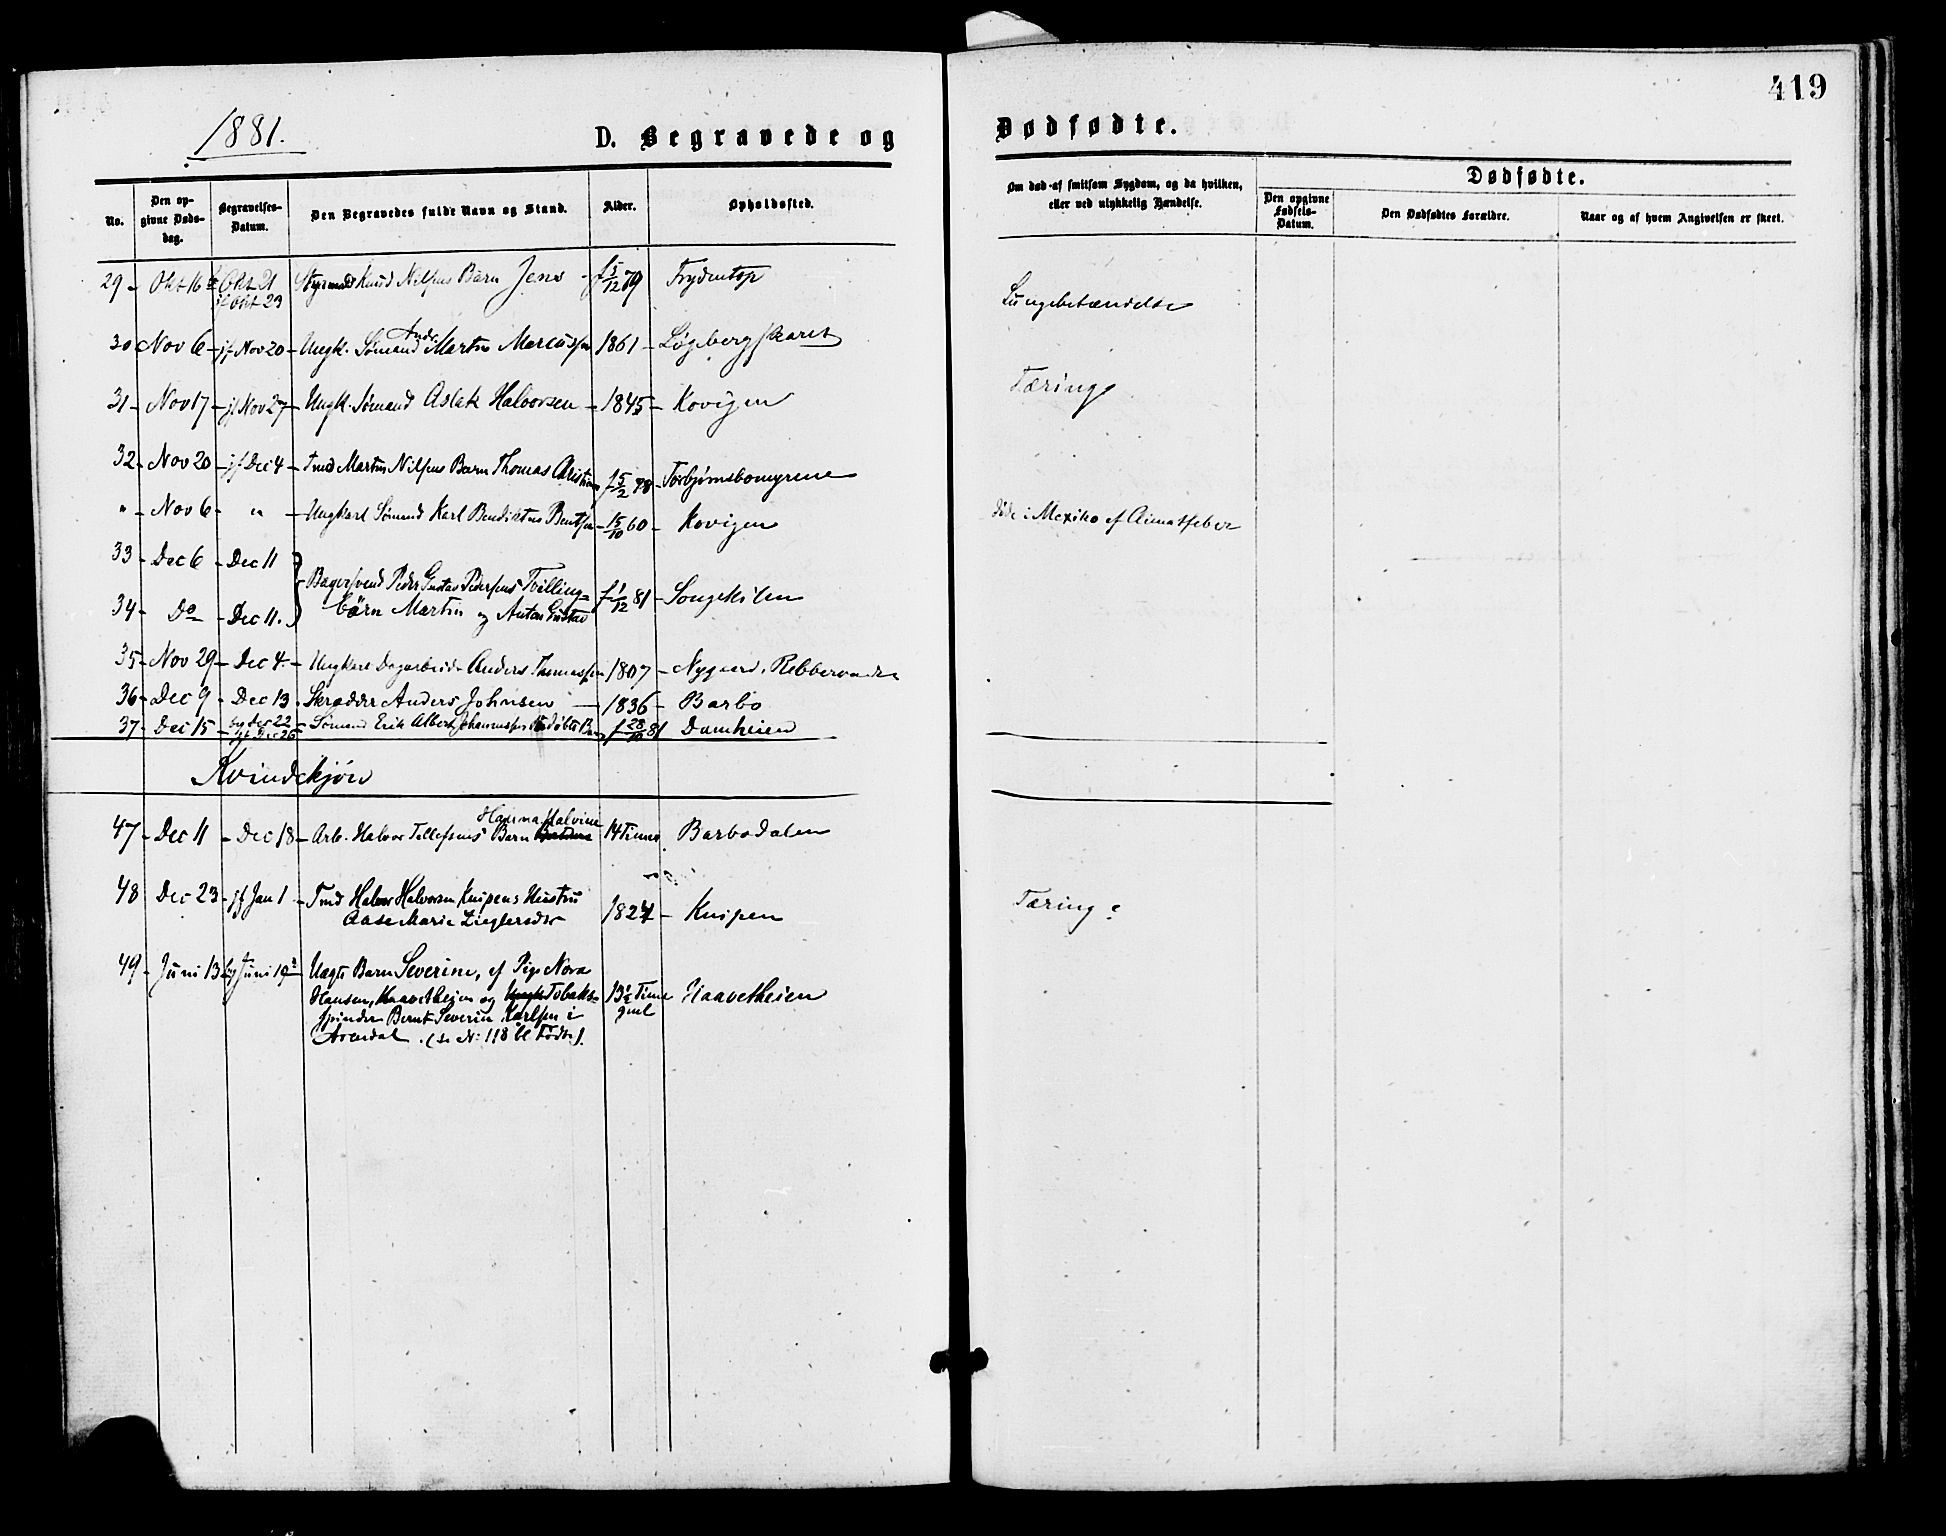 419
1881.
D. Begravede og Dødfødte.
No.
Den opgivne Dødsdag.
Begravelses-Datum.
Den Begravedes fulde Navn og Stand.
Alder.
Opholdssted.
Om død af smitsom Sygdom, og da hvilken, eller ved ulykkelig Hændelse.
Dødfødte.
Den opgivne Fødsels-Datum.
Den Dødfødtes Forældre.
Naar og af hvem Angivelsen er skeet.
29 - Okt 16 Okt 21 Knud Nilsens Barn Jens f 5/12 79 Frydentop
jf Okt 23 Lungebetændelse
30 Nov 6 - jf Nov 20 - Ungk. Sømand Martin Marcussen 1861 - Løgebergskaret
Tæring
31 - Nov 17 - jf Nov 27 - Ungk. Sømand Aslak Halvorsen - 1845 - Kovigen
32 - Nov 20 - jf Dec 4 - Tmd Martin Nilsens Barn Thomas Christian f 5/2 78 - Torbjørnsbomyrene
" - Nov 6 - " - Ungkarl Sømand Karl Bendiktus Bentsen - 15/10 60 - Kovigen døde i Mexiko af Climatfeber
33 - Dec 6 - Dec 11
Bagersvend Peder Gustav Pedersens Tvilling=
34 - Do - Dec 11. børn Martin og Anton Gustav f 1/12 81 - Songekilen
35 - Nov 29 - Dec 4. - Ungkarl Dagarbeid. Anders Thomassen - 1807 - Nygaard,
36 - Dec 9 - Dec 13. Skrædder Anders Johnsen - 1836 - Barbo
37 - Dec 15 - Dec 22 - Sømand Erik Albert Johannesens udøbte Barn f 28/10 81 Damheien
jf Dec 26
Kvindekjøn
Hanna Malvine
47 - Dec 11 - Dec 18 - Arb. Halvor Tellefsens Barn 14 Timer Barbodalen
48 Dec 23 - jf Jan 1 - Tmd Halvor Halvorsen Knipens Hustru
Aase Marie Zieglersdtr 1824 - Knipen Tæring
49 - Juni 13 Juni 19 Uægte Barn Severine, af Pige Nora
Hansen, Haavetheien og Tobaks=
spinder Bernt Severin Karlsen i 13½ Time gml Haavetheien
Arendal. (se No 118 bl Fødte).